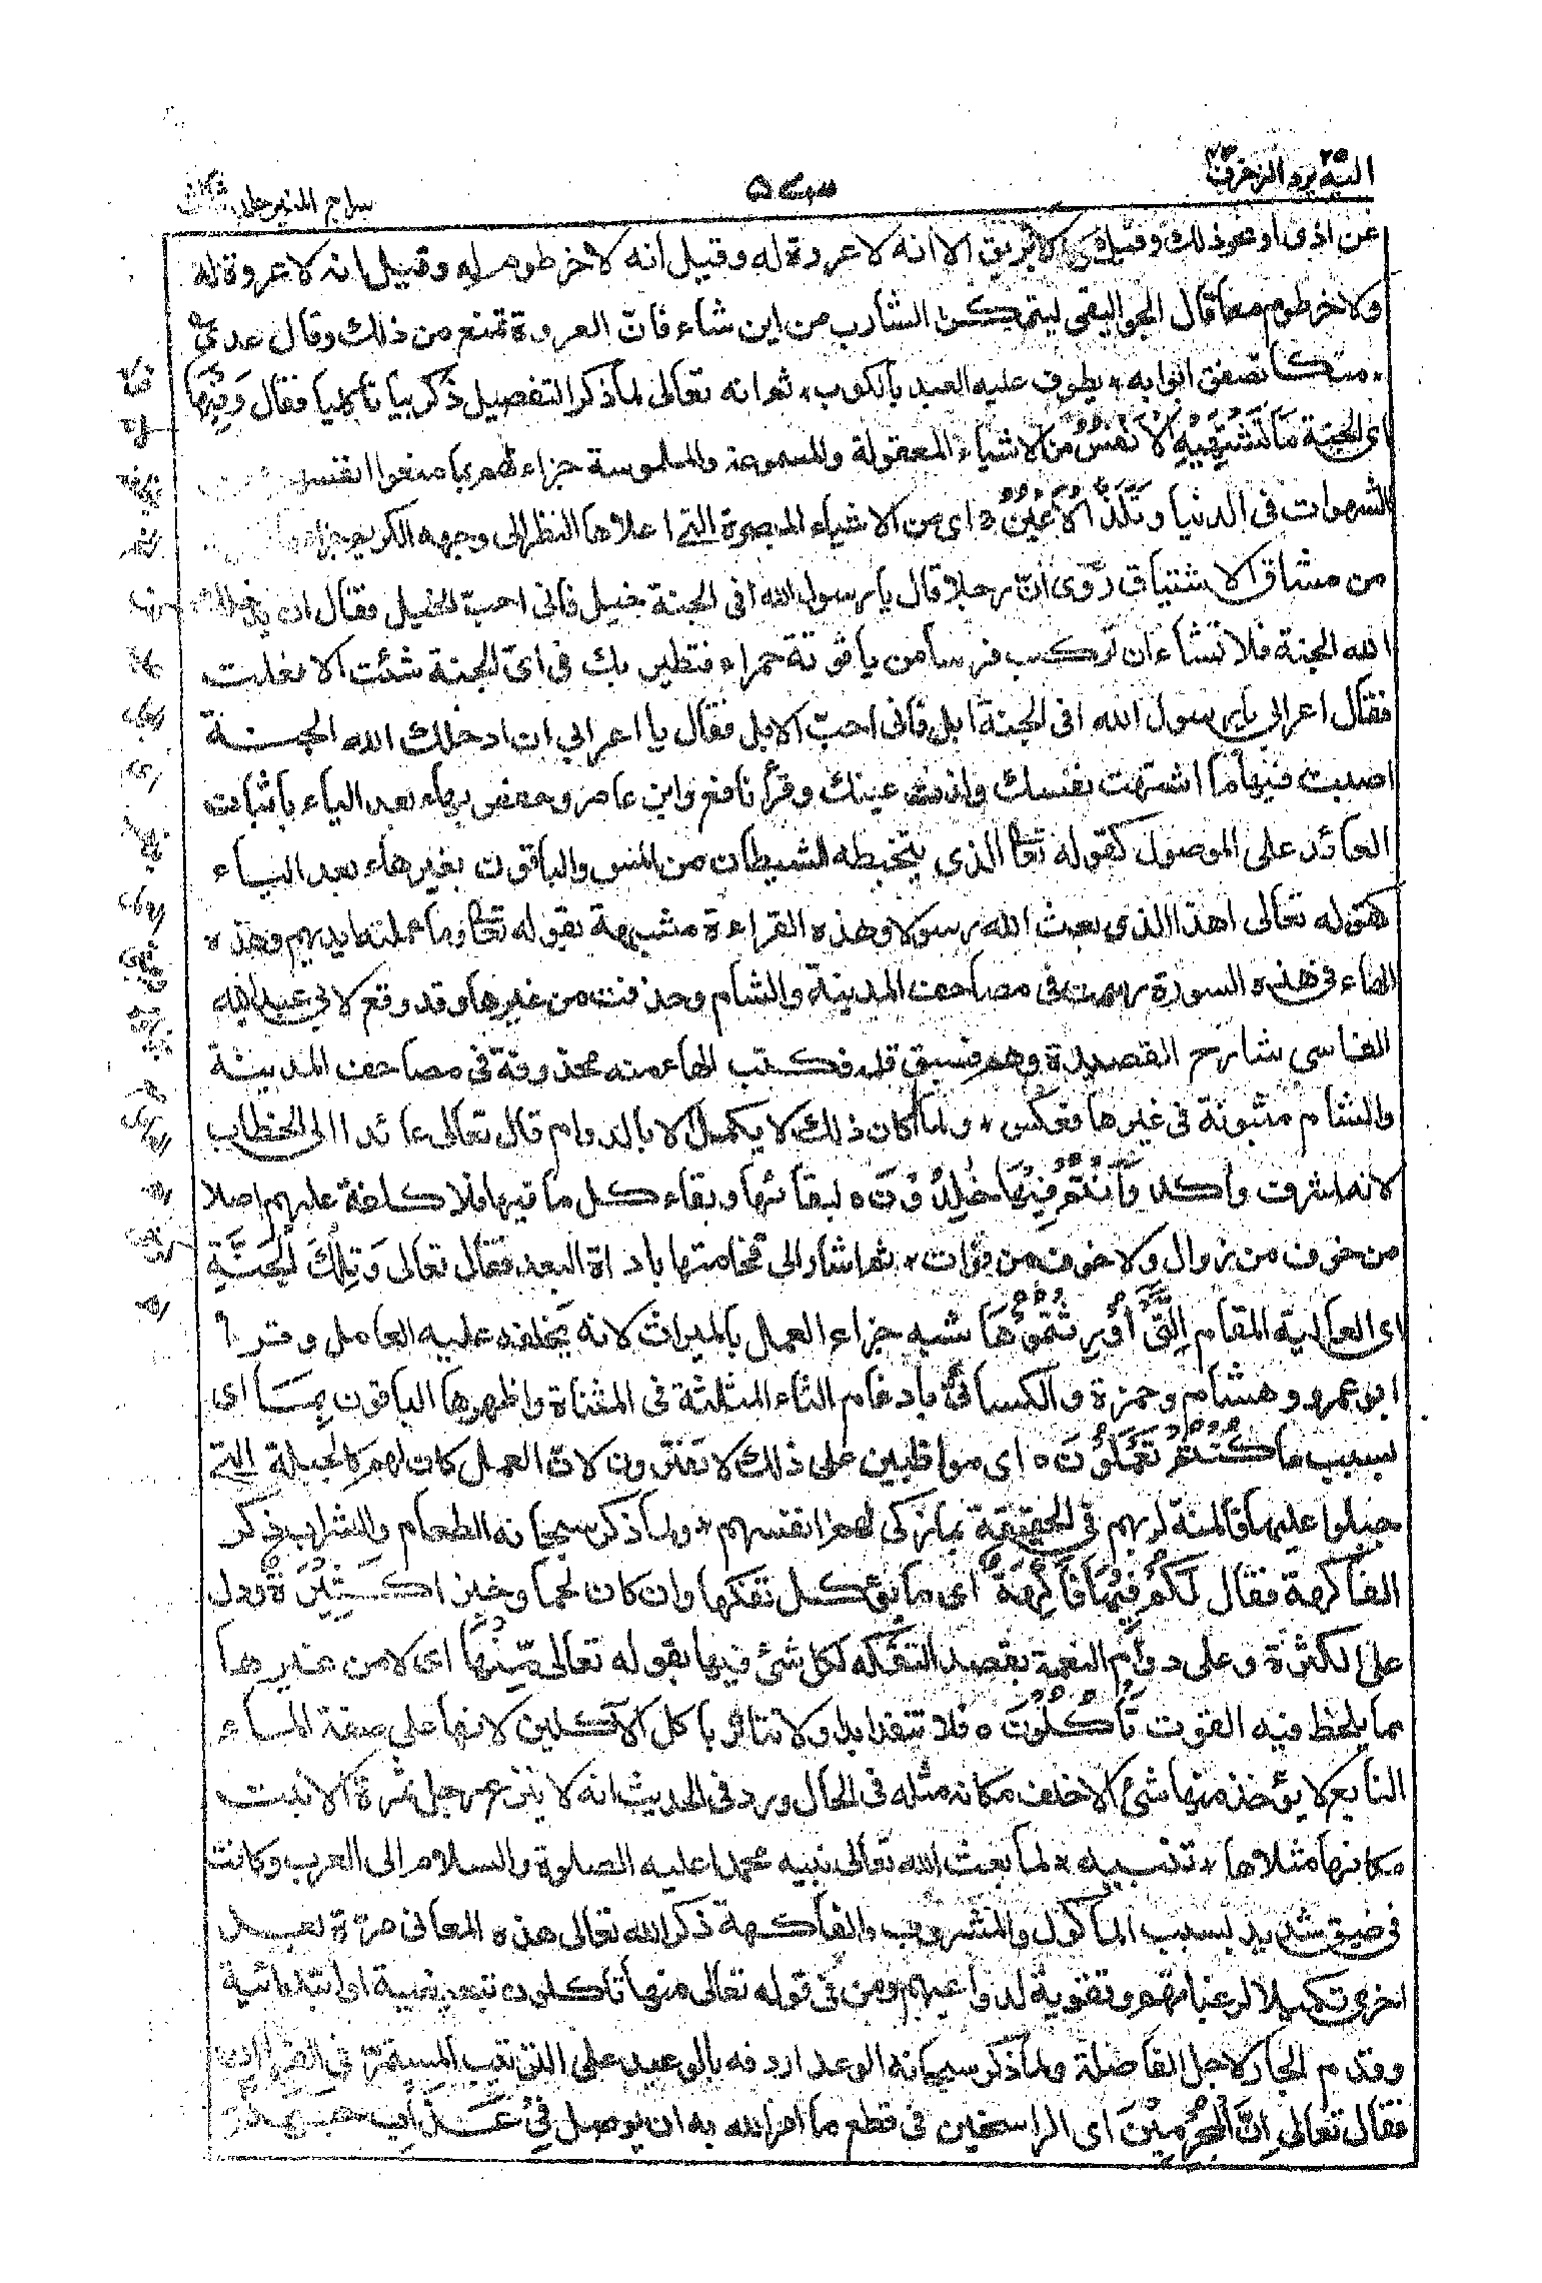 اليه يرد ٢٥ الزخرف ٤٣
٥٧٣
سراج المنير جلد ثالث
عن اذى او نحو ذلك وقيل هى كالابريق الا انه لا عروة له وقيل انه لا خرطوم له وقيل انه لا عروة له
ولا خرطوم معا قال الجواليقى ليتمكن الشارب من اين شاء فانّ العروة تمنع من ذلك وقال عدىّ
٭ متكا تصفق ابوابه ٭ يطوف عليه العبد بالكوب ٭ ثم انه تعالى لما ذكر التفصيل ذكر بيانا كليا فقال وَفِيْهَا
اى الجنة مَا تَشْتَهِيْهِ الْاَنْفُسُ من الاشياء المعقولة والمسموعة والملموسة جزاء لهم بما منعوا انفسهم من
الشهوات فى الدنيا وَتَلَذُّ الْاَعْيُنُ ج اى من الاشياء المبصرة التى اعلاها النظر الى وجهه الكريم جزاء ما
من مشاق الاشتياق روى انّ رجلا قال يا رسول الله افى الجنة خيل فانى احبّ الخيل فقال ان يدخلك
الله الجنة فلا تشاء ان تركب فرسا من ياقوتة حمراء فتطير بك فى اىّ الجنة شئت الا فعلت
فقال اعرابى يا رسول الله افى الجنة ابل فانى احبّ الابل فقال يا اعرابي ان ادخلك الله الجنة
اصبت فيها ما اشتهت نفسك ولذت عينك وقرأ نافع وابن عامر وحفص بهاء بعد الياء باثبات
العائد على الموصول كقوله تعا الذى يتخبطه الشيطان من المس والباقون بغير هاء بعد الياء
كقوله تعالى اهذا الذى بعث الله رسولا وهذه القراءة مشبهة بقوله تعا وما عملته ايديهم وهذه
الهاء فى هذه السورة رسمت فى مصاحف المدينة والشام وحذفت من غيرها وقد وقع لابي عبد الله
الفاسى شارح القصيدة وهم فسبق قلمه فكتب الهاء منه محذوفة فى مصاحف المدينة
والشام مثبوتة فى غيرها فعكس ٭ ولما كان ذلك لا يكمل الا بالدوام قال تعالى عائدا الى الخطاب
لانه اشرف واكد وَاَنْتُمْ فِيْهَا خٰلِدُوْنَ ٥ لبقائها وبقاء كل ما فيها فلا كلفة عليهم اصلا
من خوف من زوال ولا خوف من فوات ٭ ثم اشار الى فخامتها باداة البعد فقال تعالى وَتِلْكَ الْجَنَّةُ
اى العالية المقام الَّتِىْٓ اُوْرِثْتُمُوْهَا شبه جزاء العمل بالميراث لانه يخلفه عليه العامل وقرأ
ابو عمرو وهشام وحمزة والكسائىّ بادغام الثاء المثلثة فى المثناة واظهرها الباقون بِمَا اى
بسبب ما كُنْتُمْ تَعْمَلُوْنَ ٥ اى مواظبين على ذلك لا تفترون لانّ العمل كان لهم كالجبلة التى
جبلوا عليها فالمنة لربهم فى الحقيقة بما زكى لهم انفسهم ٭ ولما ذكر سبحانه الطعام والشراب ذكر
الفاكهة فقال لَكُمْ فِيْهَا فَاكِهَةٌ اى ما يؤكل تفكها وان كان لحما وخبزا كَثِيْرَةٌ ودل
على الكثرة وعلى دوام النعمة بقصد التفكه لكل شئ فيها بقوله تعالى مِّنْهَا اى لا من غيرها
مما يلحظ فيه القوت تَأْكُلُوْنَ ٥ فلا تنفد ابدا ولا تتاثر باكل الآكلين لانها على صفة الماء
النابع لا يؤخذ منها شئ الا خلف مكانه مثله فى الحال ورد فى الحديث انه لا ينزع رجل ثمرة الا نبت
مكانها مثلاها ٭ تنبيه ٭ لما بعث الله تعالى نبيه محمدا عليه الصلوة والسلام الى العرب وكانت
فى ضيق شديد بسبب الماكول والمشروب والفاكهة ذكر الله تعالى هذه المعانى مرّة بعد
اخرى تكميلا لرغباتهم وتقوية لدواعيهم ومن فى قوله تعالى منها تأكلون تبعيضية او ابتدائية
وقدم الجار لاجل الفاصلة ولما ذكر سبحانه الوعد اردفه بالوعيد على الترتيب المستمرّ فى القرآن
فقال تعالى اِنَّ الْمُجْرِمِيْنَ اى الراسخين فى قطع ما امر الله به ان يوصل فِىْ عَذَابِ جَهَنَّمَ